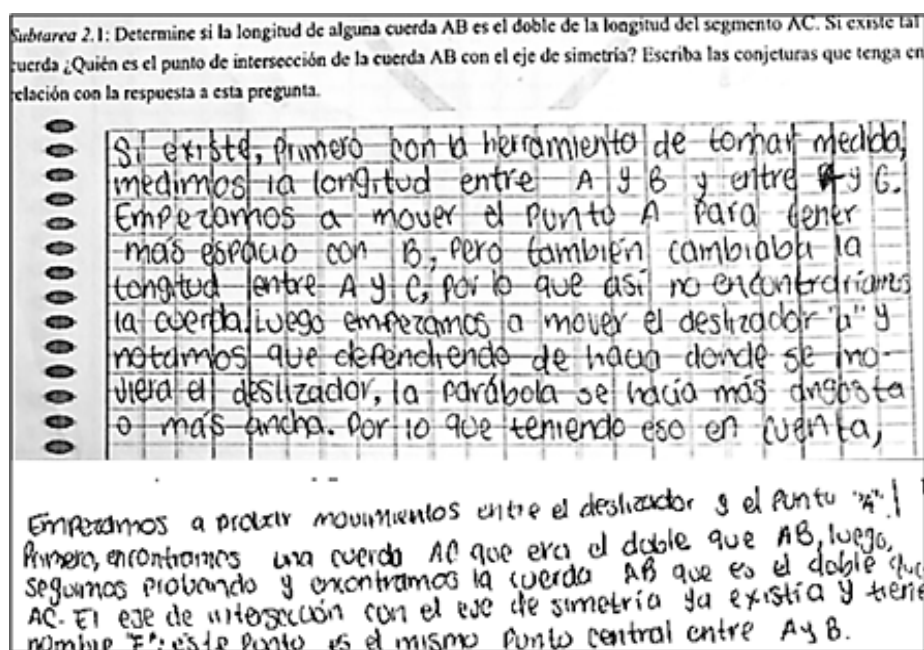 Subtarea 2.1: Determine si la longitud de alguna cuerda AB es el doble de la longitud del segmento AC. Si existe tal
cuerda ¿Quién es el punto de intersección de la cuerda AB con el eje de simetría? Escriba las conjeturas que tenga en
relación con la respuesta a esta pregunta.
Si existe, primero con la herramienta de tomar medida,
medimos la longitud entre A y B y entre A y C.
Empezamos a mover el punto A para tener
más espacio con B, pero también cambiaba la
longitud entre A y C, por lo que así no encontrariamos
la cuerda. Luego empezamos a mover el deslizador "a" y
notamos que dependiendo de hacia donde se mo-
viera el deslizador, la parábola se hacía más angosta
o más ancha. Por lo que teniendo eso en cuenta,
Empezamos a probar movimientos entre el deslizador y el punto "A".
Primero, encontramos una cuerda AC que era el doble que AB, luego,
seguimos probando y encontramos la cuerda AB que es el doble que
AC. El eje de intersección con el eje de simetría ya existía y tiene
nombre "F": este punto es el mismo punto central entre A y B.